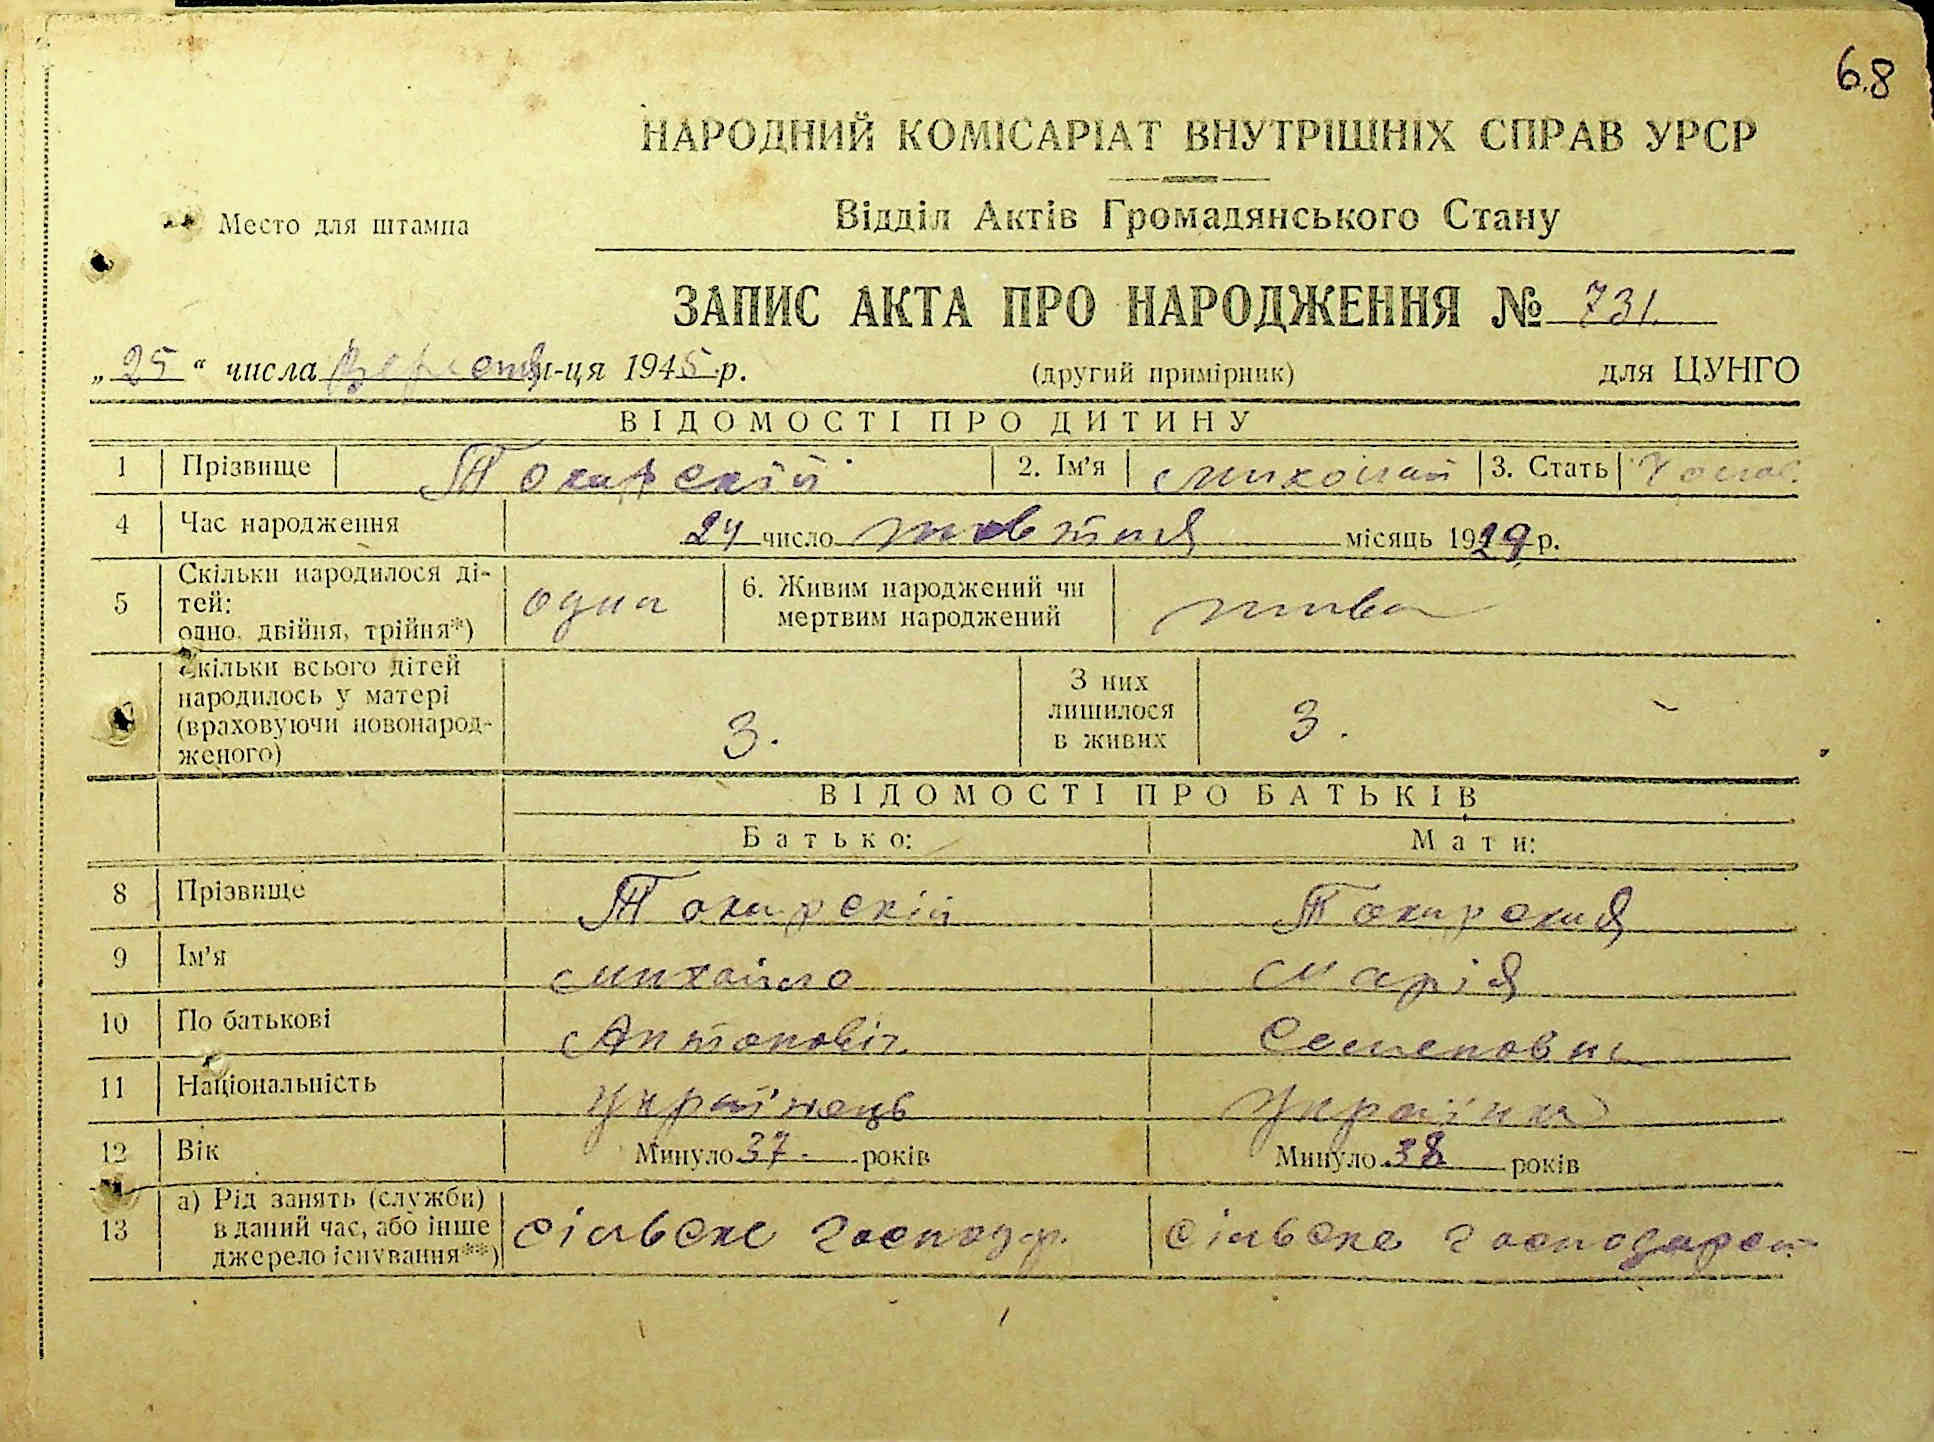 68
НАРОДНИЙ КОМІСАРІАТ ВНУТРІШНІХ СПРАВ УРСР
Место для штампа
Відділ Актів Громадянського Стану
ЗАПИС АКТА ПРО НАРОДЖЕННЯ № 731
„25“ числа вересня м-ця 1945 р. (другий примірник) для ЦУНГО
ВІДОМОСТІ ПРО ДИТИНУ
1 Прізвище Токарскій 2. Ім'я Миколай 3. Стать Чолов.
4 Час народження 24 число жовтня місяць 1929 р.
5 Скільки народилося ді-
тей:
одно, двійня, трійня*) одна 6. Живим народжений чи
мертвим народжений жива
Скільки всього дітей
народилось у матері
(враховуючи новонарод-
женого) 3. З них
лишилося
в живих 3.
ВІДОМОСТІ ПРО БАТЬКІВ
Батько: Мати:
8 Прізвище Токарскій Токарская
9 Ім'я Михайло Марія
10 По батькові Антоновіч Семеновна
11 Національність Українець Українка
12 Вік Минуло 37 років Минуло 38 років
13 а) Рід занять (служби)
в даний час, або інше
джерело існування**) сільске господар. сільске господарст